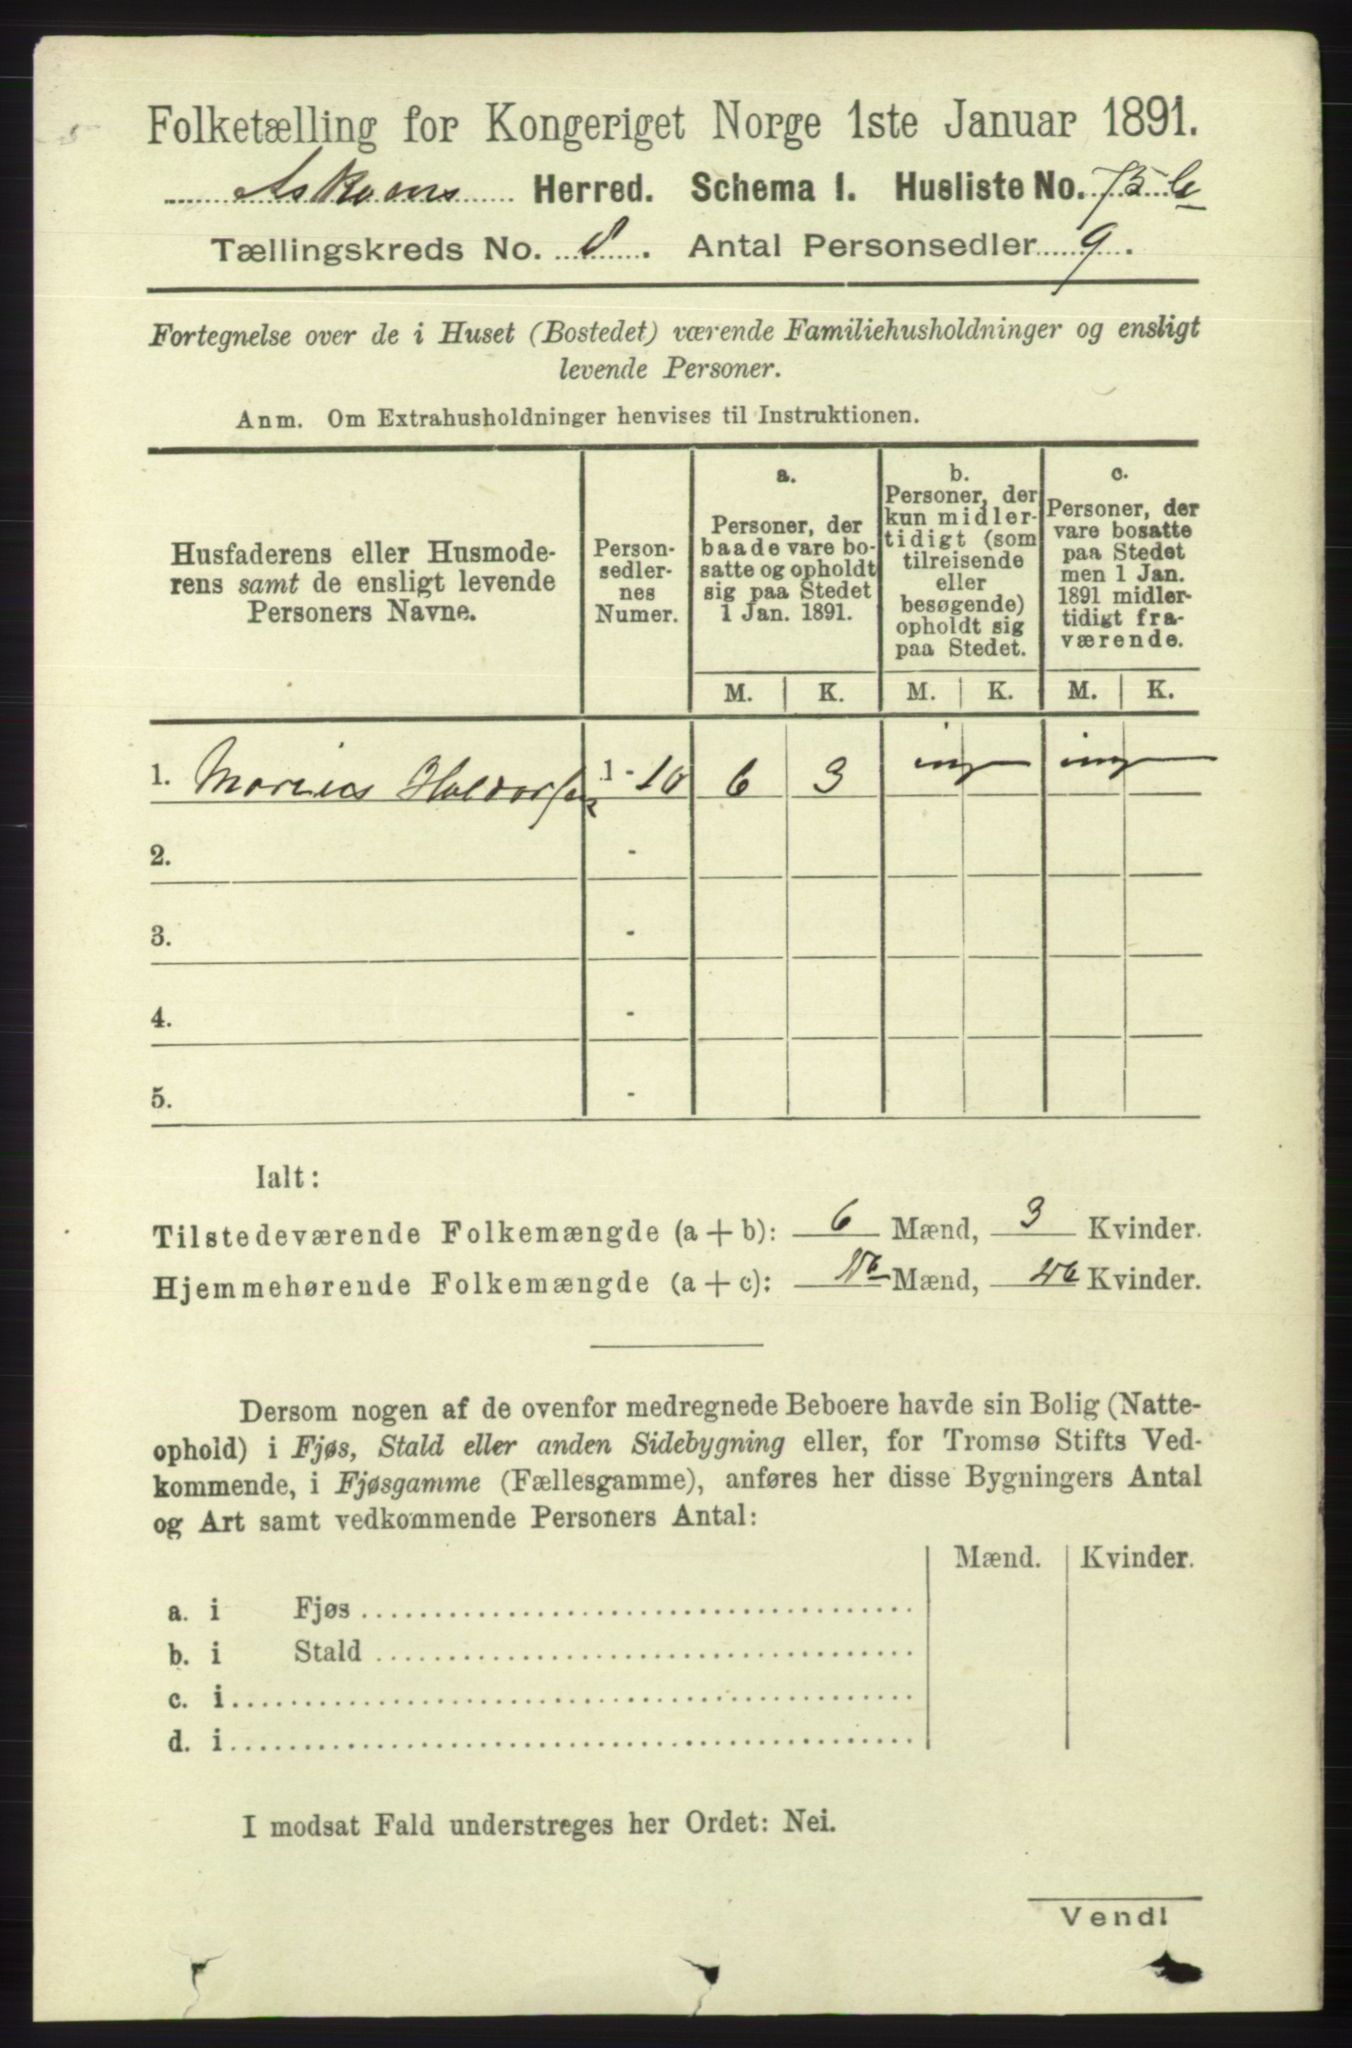 Folketælling for Kongeriget Norge 1ste Januar 1891.
Askvolds Herred. Schema 1. Husliste No. 75 b
Tællingskreds No. 8. Antal Personsedler 9.
Fortegnelse over de i Huset (Bostedet) værende Familiehusholdninger og ensligt
levende Personer.
Anm. Om Extrahusholdninger henvises til Instruktionen.
Husfaderens eller Husmode-
rens samt de ensligt levende
Personers Navne.
Person-
sedler-
nes
Numer.
a.
Personer, der
baade vare bo-
satte og opholdt
sig paa Stedet
1 Jan. 1891.
b.
Personer, der
kun midler-
tidigt (som
tilreisende
eller
besøgende)
opholdt sig
paa Stedet.
c.
Personer, der
vare bosatte
paa Stedet
men 1 Jan.
1891 midler-
tidigt fra-
værende.
M. K. M. K. M. K.
1. Marius Haldorsen 1 - 10 6 3 ing ing
2. -
3. -
4. -
5. -
Ialt:
Tilstedeværende Folkemængde (a + b): 6 Mænd, 3 Kvinder.
Hjemmehørende Folkemængde (a + c): Mænd, Kvinder.
Dersom nogen af de ovenfor medregnede Beboere havde sin Bolig (Natte-
ophold) i Fjøs, Stald eller anden Sidebygning eller, for Tromsø Stifts Ved-
kommende, i Fjøsgamme (Fællesgamme), anføres her disse Bygningers Antal
og Art samt vedkommende Personers Antal:
Mænd. Kvinder.
a. i Fjøs
b. i Stald
c. i
d. i
I modsat Fald understreges her Ordet: Nei.
Vend!